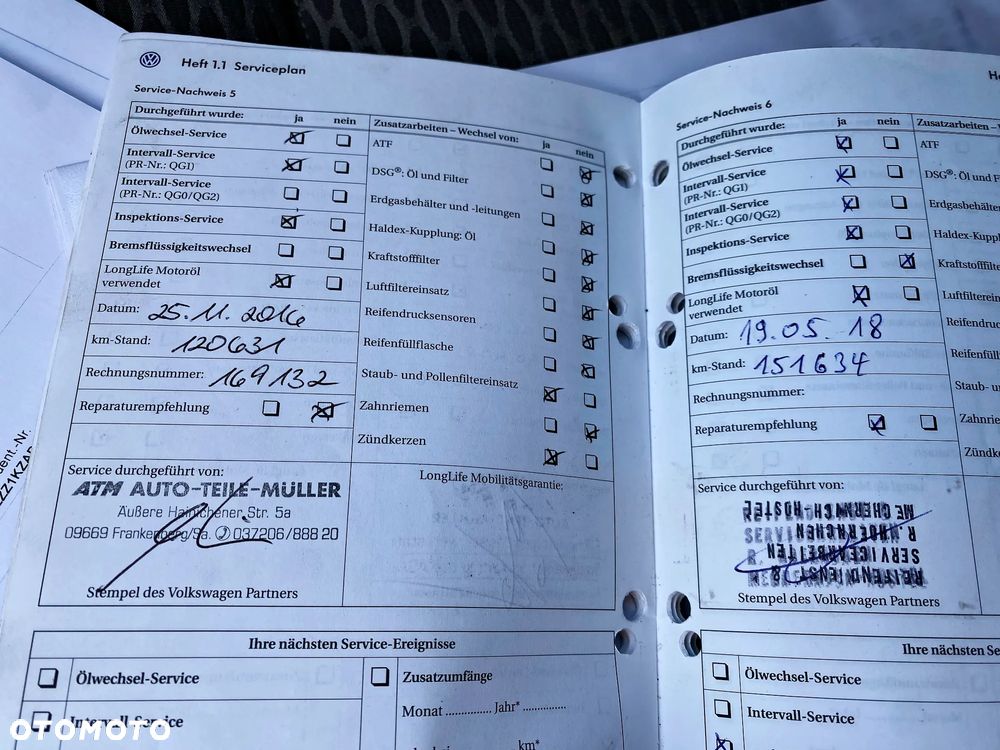 Heft 1.1 Serviceplan
Service-Nachweis 5
Durchgeführt wurde: ja nein
Ölwechsel-Service
Intervall-Service
(PR-Nr.: QG1)
Intervall-Service
(PR-Nr.: QG0/QG2)
Inspektions-Service
Bremsflüssigkeitswechsel
LongLife Motoröl
verwendet
Datum: 25.11.2016
km-Stand: 120631
Rechnungsnummer: 169132
Reparaturempfehlung
Zusatzarbeiten – Wechsel von: ja nein
ATF
DSG®: Öl und Filter
Erdgasbehälter und -leitungen
Haldex-Kupplung: Öl
Kraftstofffilter
Luftfiltereinsatz
Reifendrucksensoren
Reifenfüllflasche
Staub- und Pollenfiltereinsatz
Zahnriemen
Zündkerzen
Service durchgeführt von:
ATM AUTO-TEILE-MÜLLER
Äußere Hainichener Str. 5a
09669 Frankenberg/Sa. 037206/888 20
Stempel des Volkswagen Partners
LongLife Mobilitätsgarantie:
Ihre nächsten Service-Ereignisse
Ölwechsel-Service
Intervall-Service
Zusatzumfänge
Monat .............. Jahr* ..............
km*
Service-Nachweis 6
Durchgeführt wurde: ja nein
Ölwechsel-Service
Intervall-Service
(PR-Nr.: QG1)
Intervall-Service
(PR-Nr.: QG0/QG2)
Inspektions-Service
Bremsflüssigkeitswechsel
LongLife Motoröl
verwendet
Datum: 19.05.18
km-Stand: 151634
Rechnungsnummer:
Reparaturempfehlung
Zusatzarbeiten –
ATF
DSG®: Öl und F
Erdgasbehälter
Haldex-Kupplun
Kraftstofffilter
Luftfiltereins
Reifendru
Reifenfüll
Staub- u
Zahnrie
Zündk
Service durchgeführt von:
REIFENDIENST &
SERVICEARBEITEN
R. HOERNCHEN
Stempel des Volkswagen Partners
Ihre nächsten Se
Ölwechsel-Service
Intervall-Service
OTOMOTO